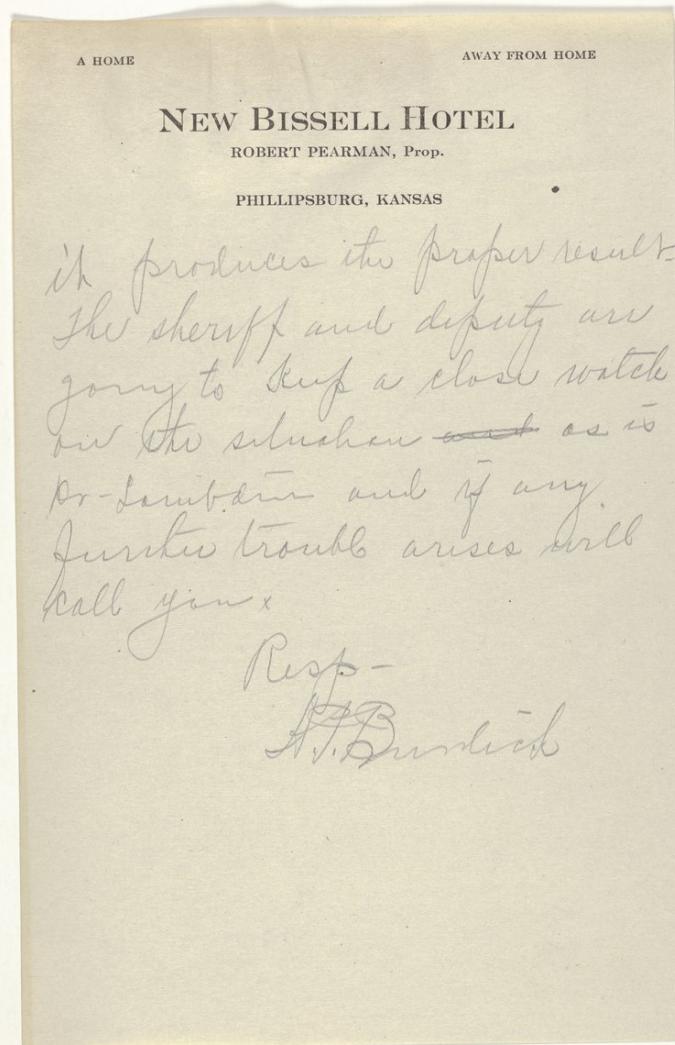 A HOME AWAY FROM HOME
NEW BISSELL HOTEL
ROBERT PEARMAN, Prop.
PHILLIPSBURG, KANSAS
it produces the proper result-
The sheriff and deputy are
going to keep a close watch
on the situation and as is
Dr-
and if any
further trouble arises will
call you x
Resp-
Burdick